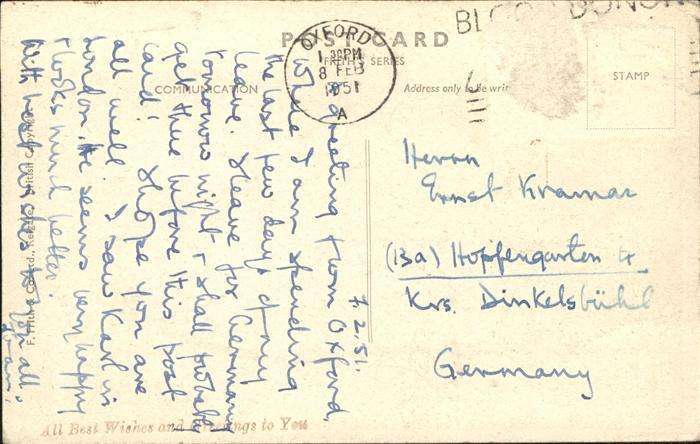 POST CARD
FRITH'S SERIES
COMMUNICATION
Address only to be writ
STAMP
OXFORD
1 30PM
8 FEB
1951
A
7.2.51.
A greeting from Oxford,
where I am spending
the last few days of my
leave. I leave for Germany
tomorrow night & shall probably
get there before this post
card! I hope you are
all well. I saw Karl in
London. He seems very happy
& looks much better.
With best wishes to you all,
Herrn
Ernst Kramar
(13a) Hopfengarten
Krs. Dinkelsbühl
Germany
F. Frith & Co. Ltd., Reigate
All Best Wishes and Greetings to You